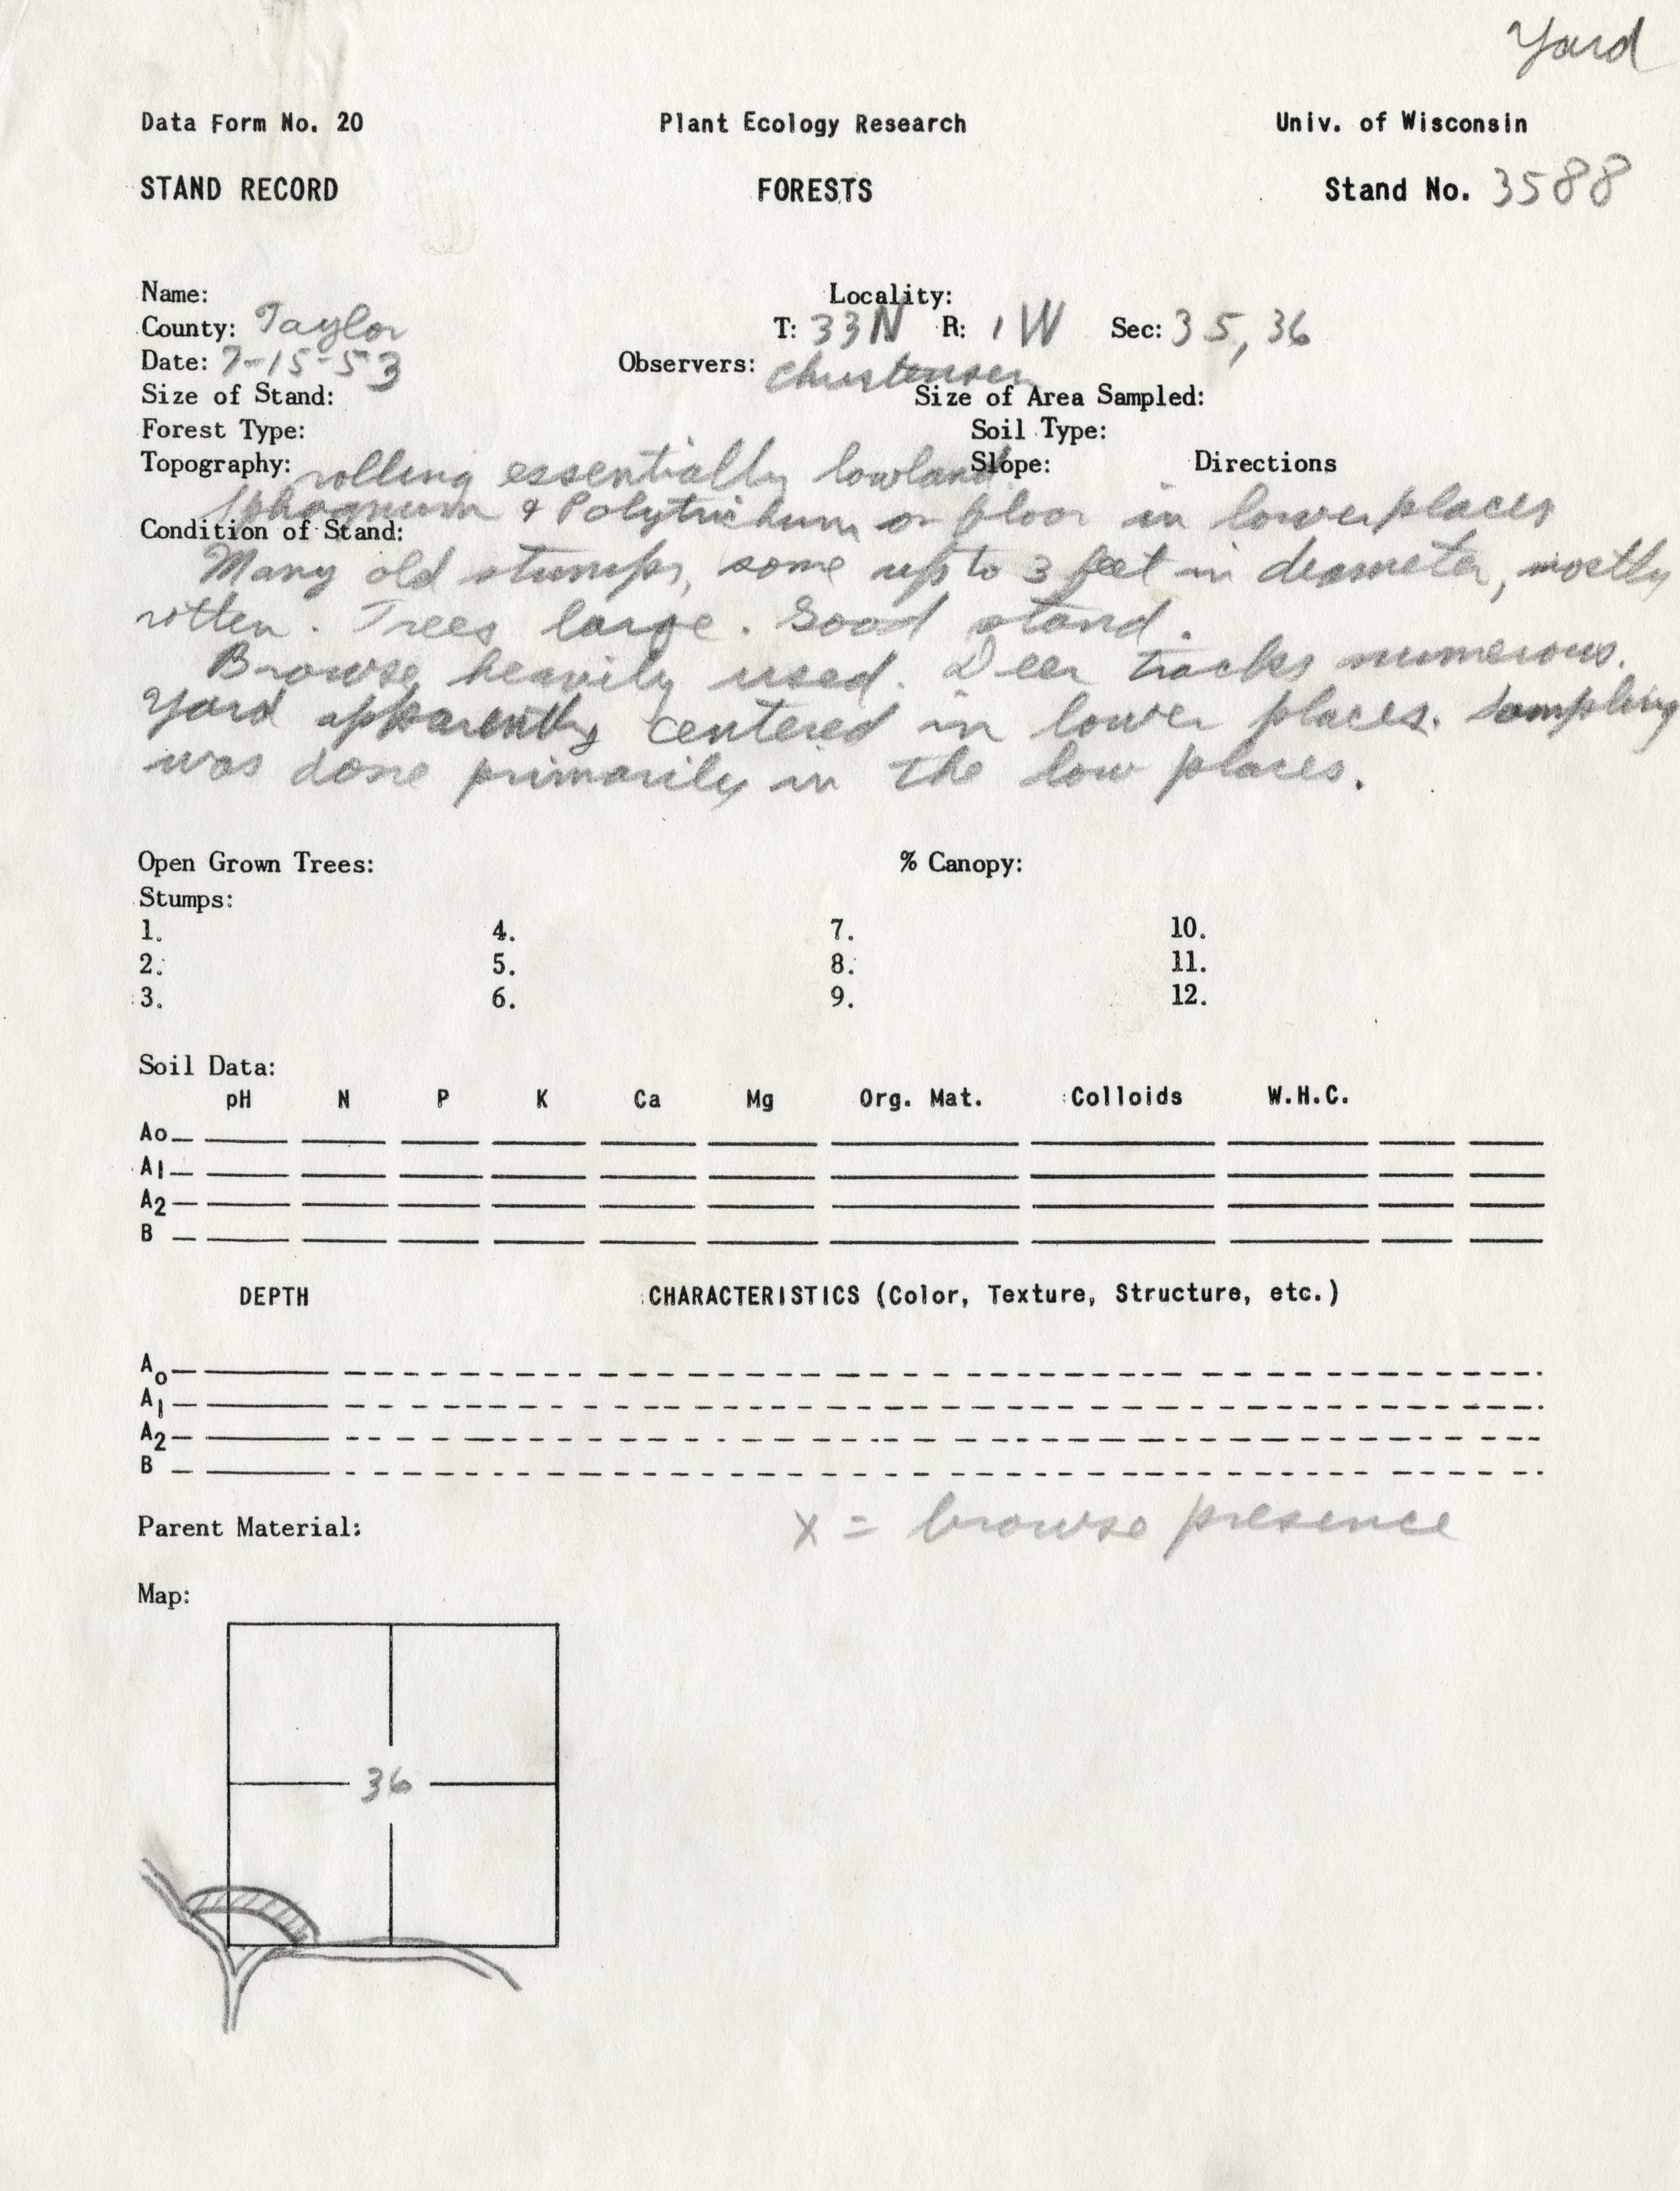 Yard
Data Form No. 20 Plant Ecology Research Univ. of Wisconsin
STAND RECORD FORESTS Stand No. 3588
Name: Locality:
County: Taylor T: 33N R: 1W Sec: 35, 36
Date: 7-15-53 Observers: Christensen
Size of Stand: Size of Area Sampled:
Forest Type: Soil Type:
Topography: rolling essentially lowland. Slope: Directions
Sphagnum & Polytrichum on floor in lower places
Condition of Stand:
Many old stumps, some up to 3 feet in diameter, mostly
rotten. Trees large. Good stand.
Browse heavily used. Deer tracks numerous.
Yard apparently centered in lower places. Sampling
was done primarily in the low places.
Open Grown Trees: % Canopy:
Stumps:
1. 4. 7. 10.
2. 5. 8. 11.
3. 6. 9. 12.
Soil Data:
pH N P K Ca Mg Org. Mat. Colloids W.H.C.
Ao
A1
A2
B
DEPTH CHARACTERISTICS (Color, Texture, Structure, etc.)
Ao
A1
A2
B
Parent Material: x = browse presence
Map:
36